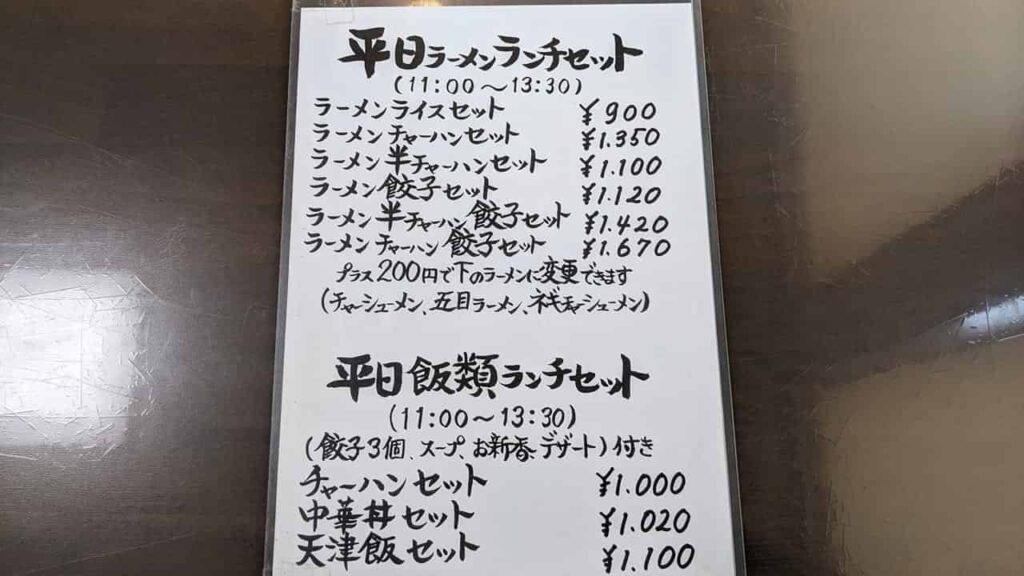 平日ラーメンランチセット
(11:00〜13:30)
ラーメンライスセット ¥900
ラーメンチャーハンセット ¥1.350
ラーメン半チャーハンセット ¥1.100
ラーメン餃子セット ¥1.120
ラーメン半チャーハン餃子セット ¥1.420
ラーメンチャーハン餃子セット ¥1.670
プラス200円で下のラーメンに変更できます
(チャーシューメン、五目ラーメン、ネギチャーシューメン)
平日飯類ランチセット
(11:00〜13:30)
(餃子3個、スープ、お新香、デザート)付き
チャーハンセット ¥1.000
中華丼セット ¥1.020
天津飯セット ¥1.100